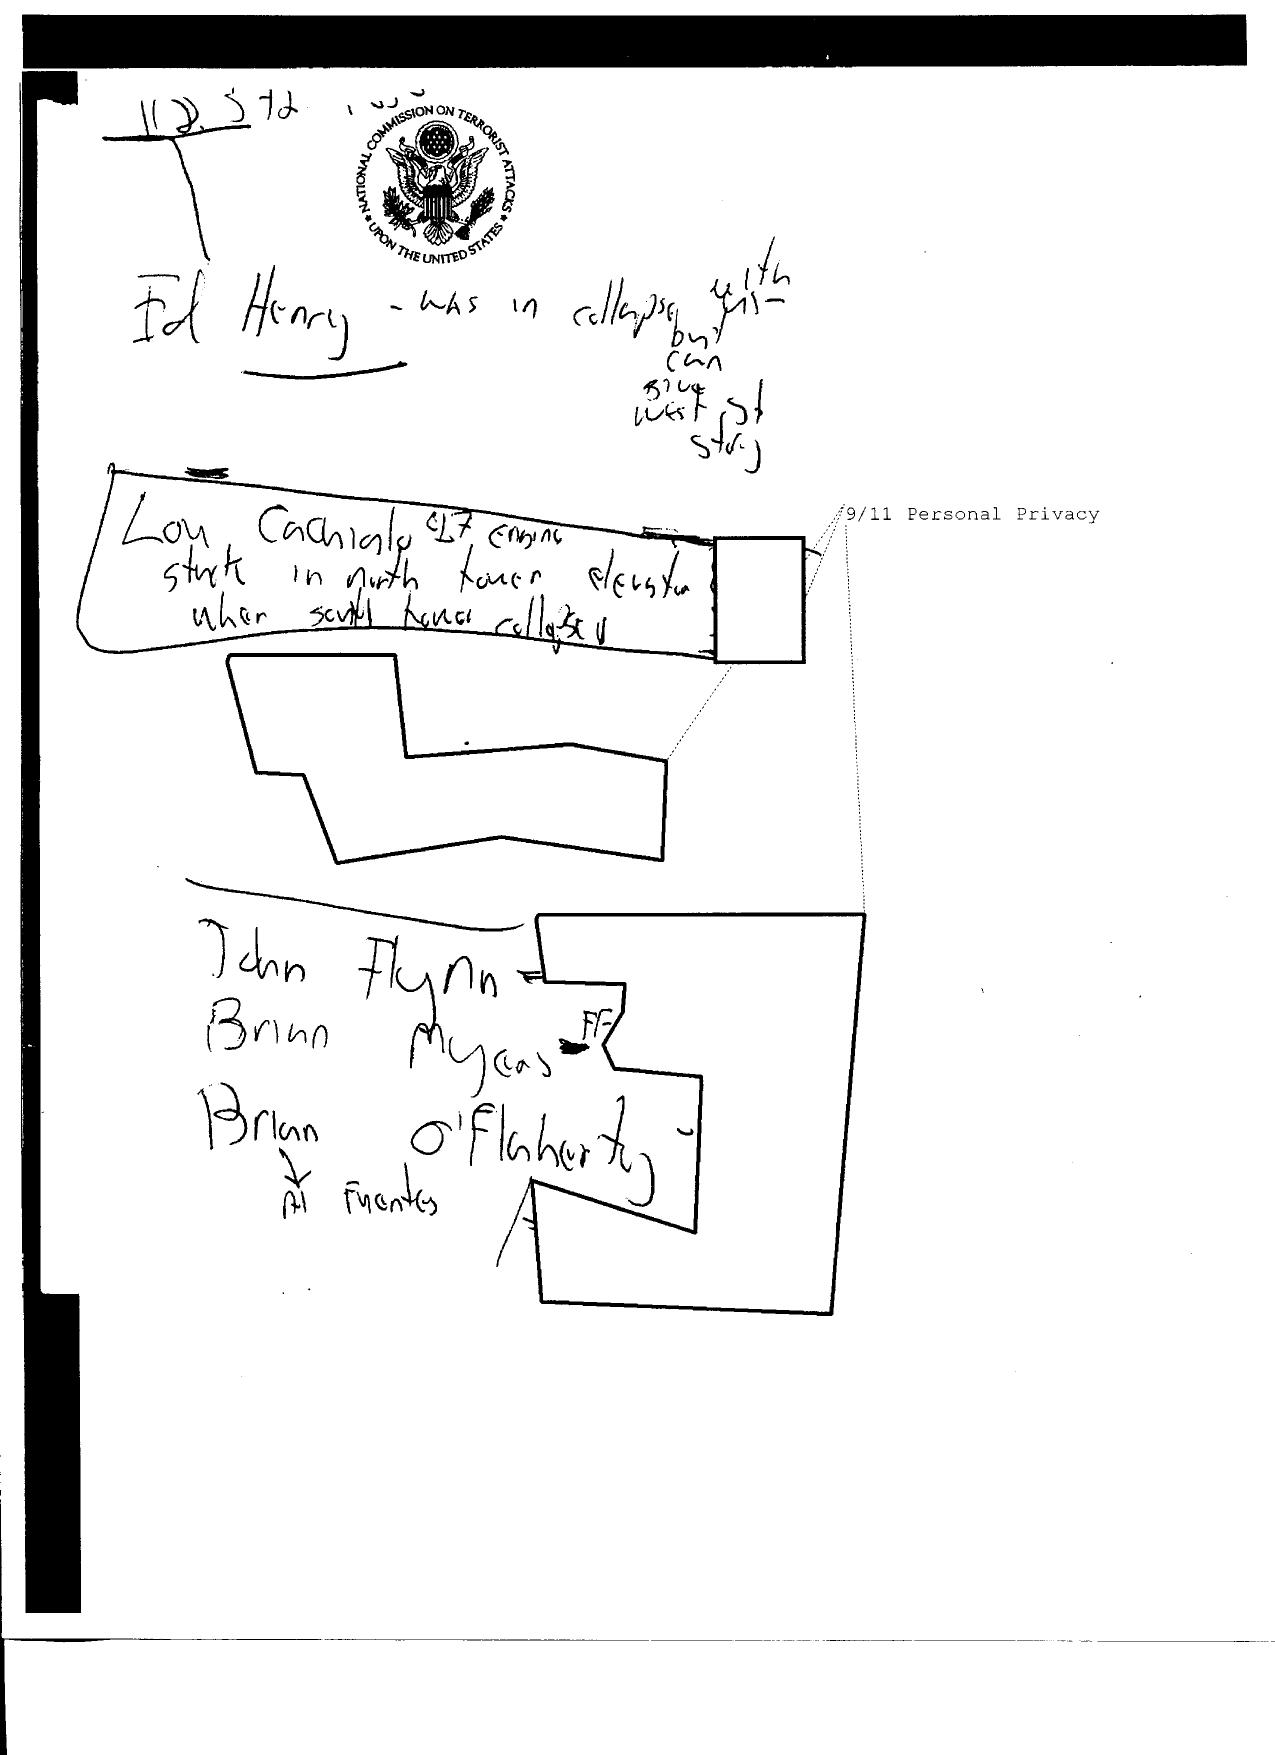 NATIONAL COMMISSION ON TERRORIST ATTACKS
UPON THE UNITED STATES
Ed Henry - was in collapse with
but
can
give
west st
story
9/11 Personal Privacy
Lou engine
stuck in north tower elevator
when south tower collapsed
John Flynn
Brian Myers FF
Brian O'Flaherty
Al Fuentes